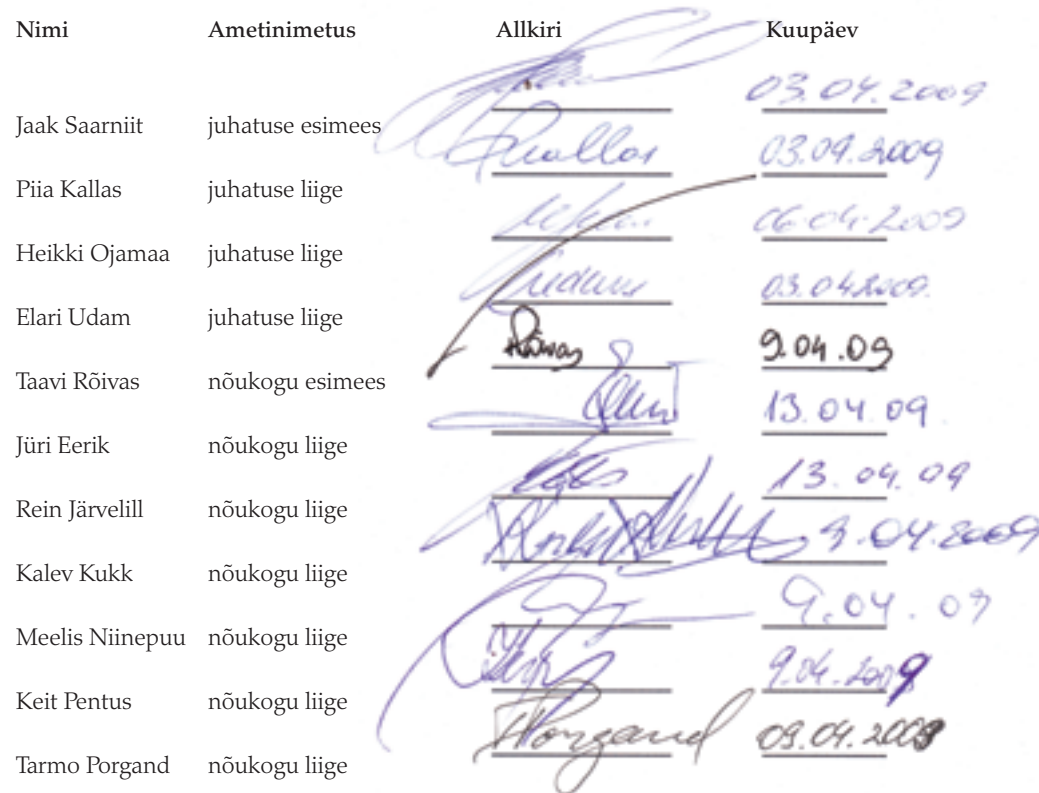 Nimi Ametinimetus Allkiri Kuupäev
03.04.2009
Jaak Saarniit juhatuse esimees
03.04.2009
Piia Kallas juhatuse liige
06.04.2009
Heikki Ojamaa juhatuse liige
03.04.2009.
Elari Udam juhatuse liige
Rõivas 9.04.09
Taavi Rõivas nõukogu esimees
13.04.09.
Jüri Eerik nõukogu liige
13.04.09
Rein Järvelill nõukogu liige
9.04.2009
Kalev Kukk nõukogu liige
9.04.09
Meelis Niinepuu nõukogu liige
9.04.2009
Keit Pentus nõukogu liige
TPorgand 09.04.2009
Tarmo Porgand nõukogu liige